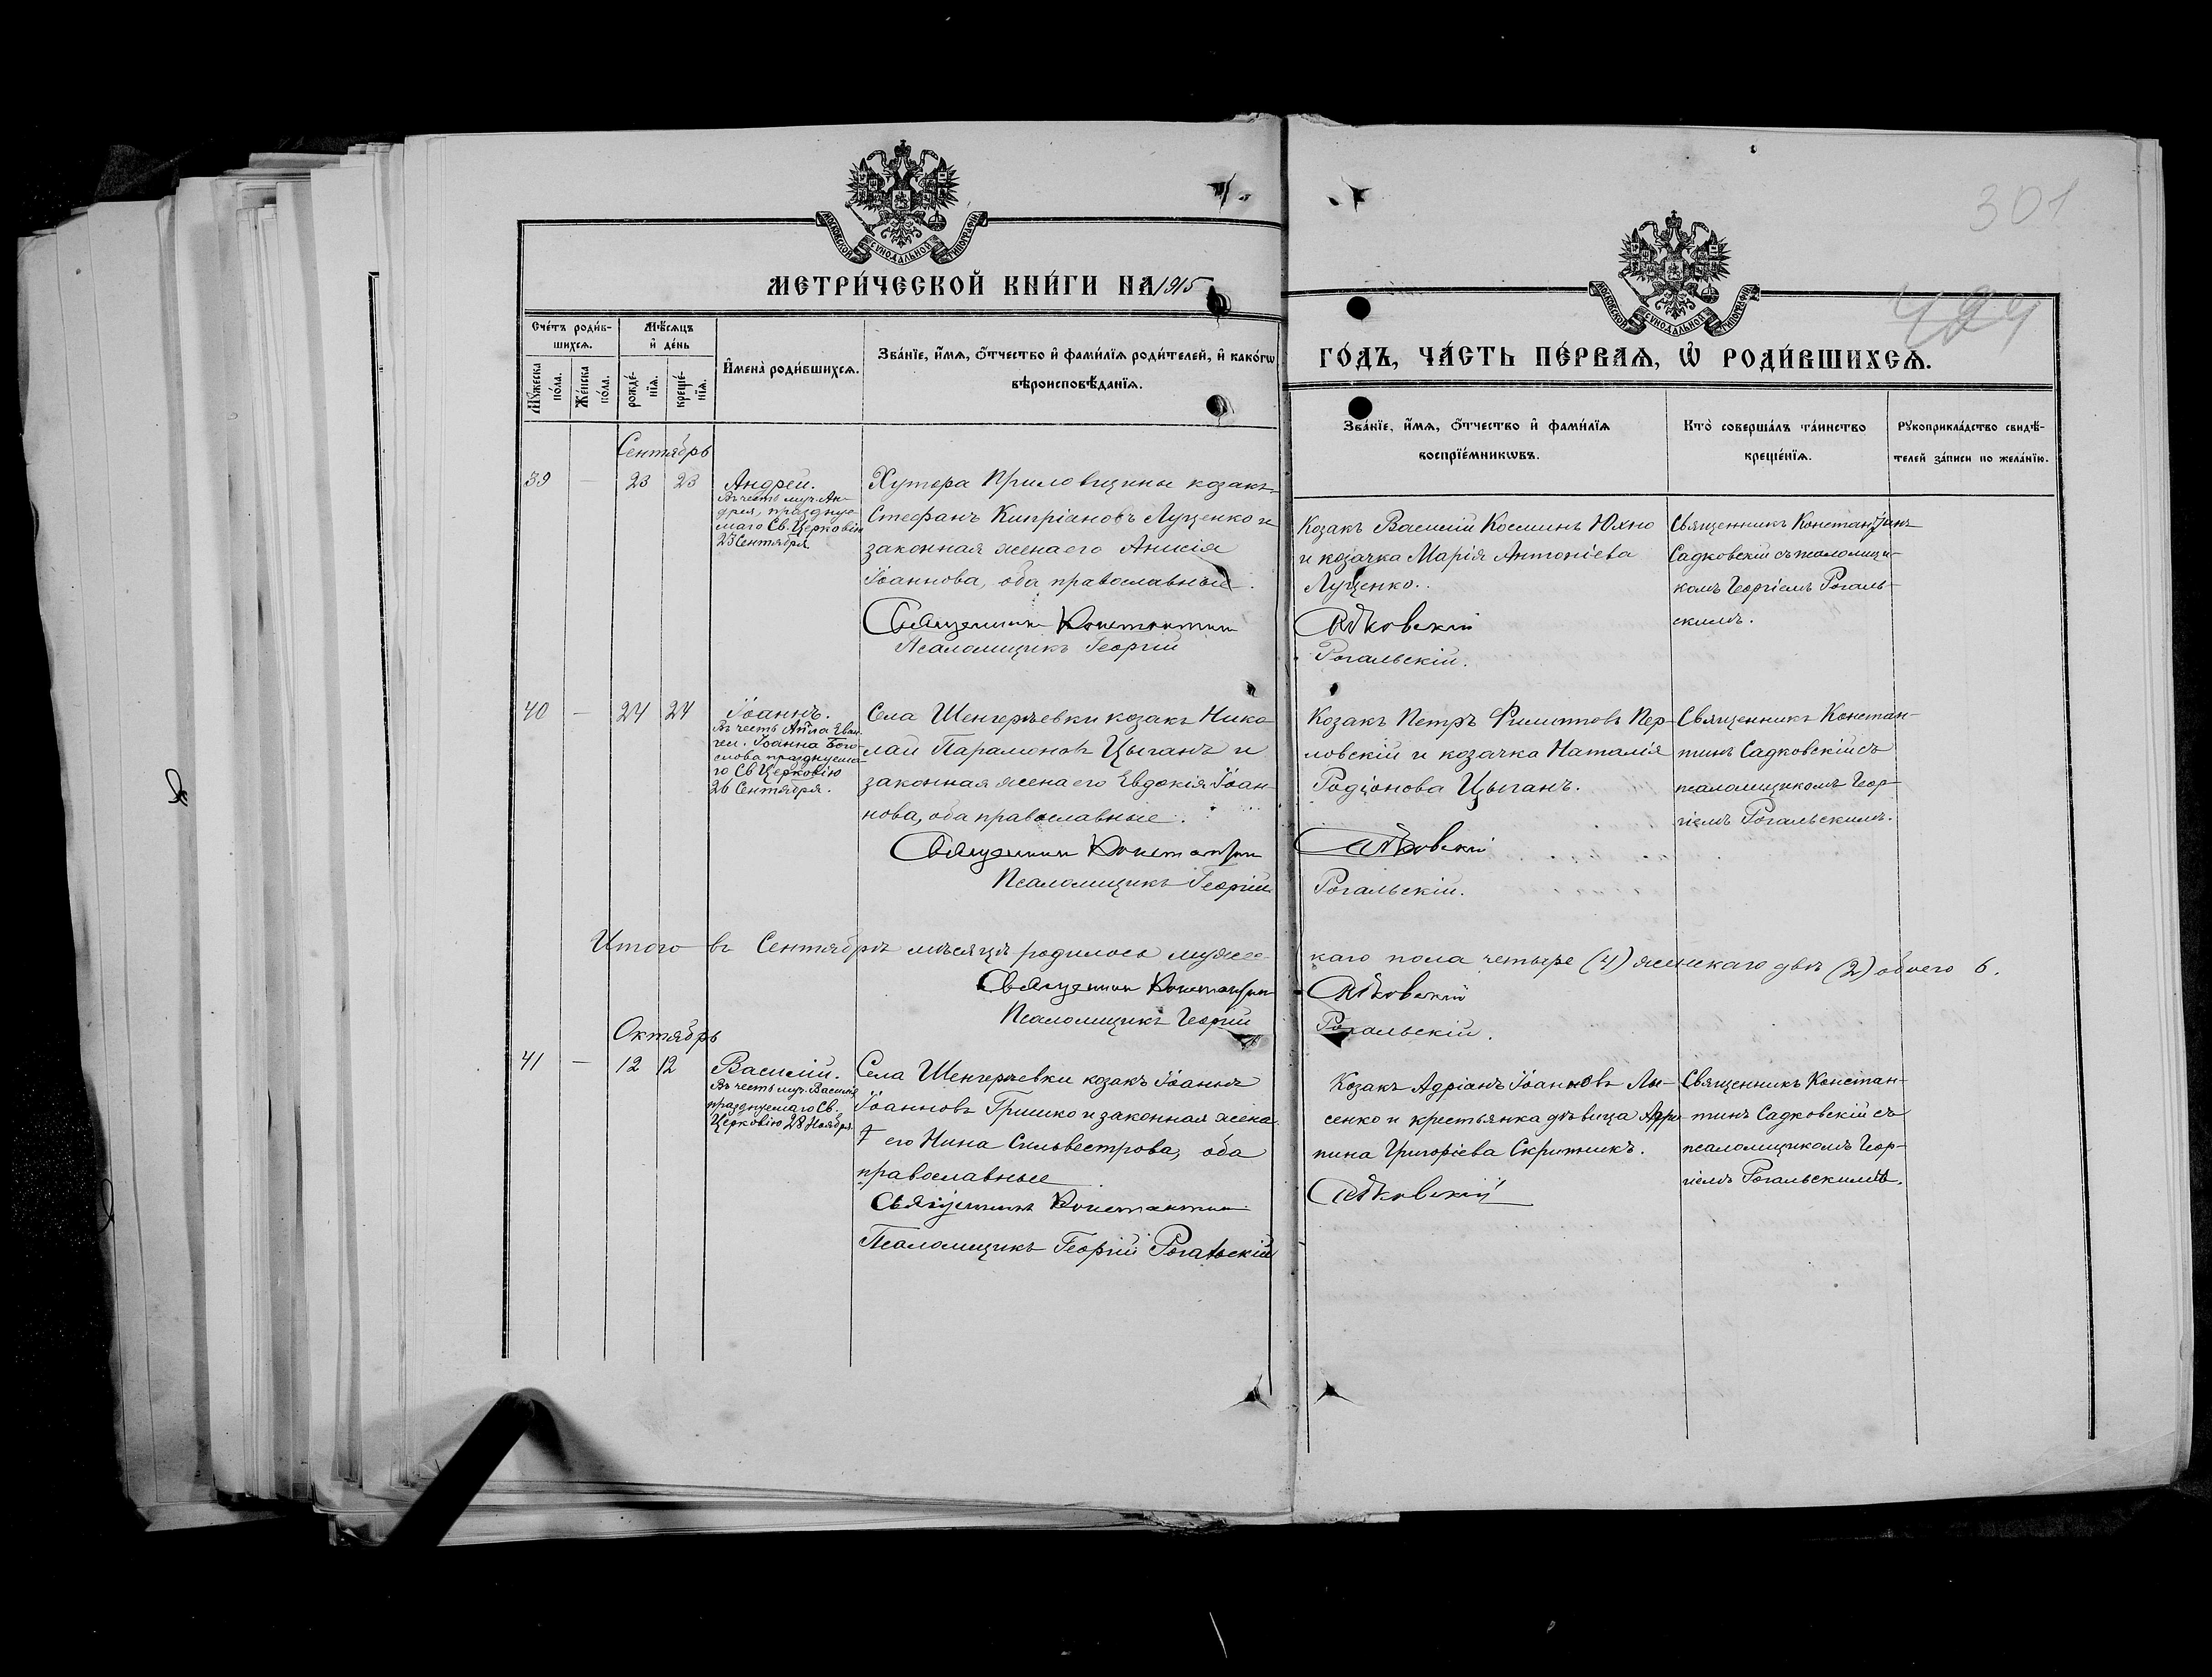 301
424
МОСКОВСКОЙ СУНОДАЛЬНОЙ ТИПОГРАФІИ
МЕТРИ́ЧЕСКОЙ КНИ́ГИ НА 1915
Сче́тъ роди́в-
шихсѧ.
Мꙋ́жеска
по́ла.
Же́нска
по́ла.
Мѣ́сѧцъ
и҆ де́нь
рожде́-
нїѧ.
креще́-
нїѧ.
И҆мена̀ роди́вшихсѧ.
Зва́нїе, и҆́мѧ, о҆́тчество и҆ фами́лїѧ роди́телей, и҆ како́гѡ
вѣроисповѣ́данїѧ.
Сентябрь
39 — 23 23
Андрей.
Въ честь муч. Ан-
дрея, праздnуе-
маго Св. Церковію
23 Сентября
Хутора Приловщины козакъ
Стефанъ Кипріановъ Луценко и
законная жена его Анисія
Іоаннова, оба православные.
Священникъ Константинъ
Псаломщикъ Георгій
40 — 24 24
Іоаннъ.
Въ честь Ап̃ла Еван
гел. Іоанна Бого-
слова празднуема-
го Св Церковію
26 Сентября.
Села Шенгерѣевки козакъ Нико-
лай Парамоновъ Цыганъ и
законная жена его Евдокія Іоан-
нова, оба православные.
Священникъ Константинъ
Псаломщикъ Георгій
Итого въ Сентябрѣ мѣсяцѣ родилось мужес-
Священникъ Константинъ
Псаломщикъ Георгій
Октябрь
41 — 12 12
Василій.
Въ честь муч. Василія,
празднуемаго Св.
Церковію 28 Ноября.
Села Шенгерѣевки козакъ Іоаннъ
Іоанновъ Гришко и законная жена
его Нина Сильвестрова, оба
православные
Священникъ Константинъ
Псаломщикъ Георгій Рогальскій
МОСКОВСКОЙ СУНОДАЛЬНОЙ ТИПОГРАФІИ
ГО́ДЪ, ЧА́СТЬ ПЕ́РВАѦ, Ѡ҆ РОДИ́ВШИХСѦ.
Зва́нїе, и҆́мѧ, о҆́тчество и҆ фами́лїѧ
воспрїе́мникѡвъ.
Кто̀ соверша́лъ та́инство
креще́нїѧ.
Рꙋкоприкла́дство свидѣ́-
телей за́писи по жела́нїю.
Козакъ Василій Косминъ Юхно
и козачка Марія Антоніева
Луценко.
Садковскій
Рогальскій.
Священникъ Константинъ
Садковскій съ псаломщи-
комъ Георгіемъ Рогаль-
скимъ.
Козакъ Петръ Филипповъ Пер-
ловскій и козачка Наталія
Родіонова Цыганъ.
Садковскій
Рогальскій.
Священникъ Констан-
тинъ Садковскій съ
псаломщикомъ Геор-
гіемъ Рогальскимъ.
каго пола четыре (4) женскаго двѣ (2) обоего 6.
Садковскій
Рогальскій.
Козакъ Адріанъ Іоанновъ Лы-
сенко и крестьянка дѣвица Агри-
пина Григоріева Скрипникъ.
Садковскій
Священникъ Констан-
тинъ Садковскій съ
псаломщикомъ Геор-
гіемъ Рогальскимъ.